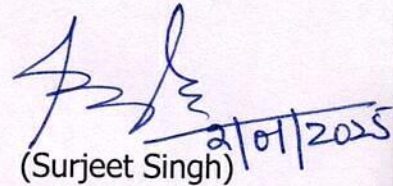 2/01/2025
(Surjeet Singh)